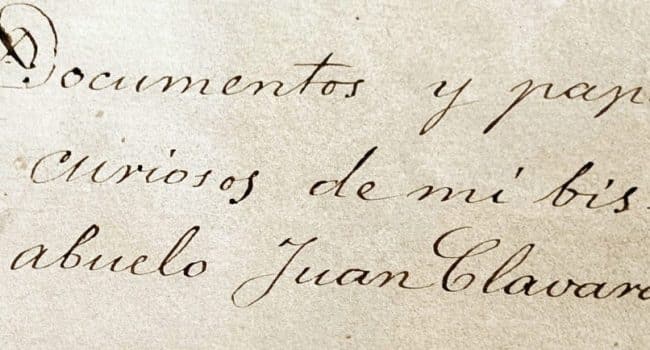 Documentos y pap
curiosos de mi bis-
abuelo Juan Clavar